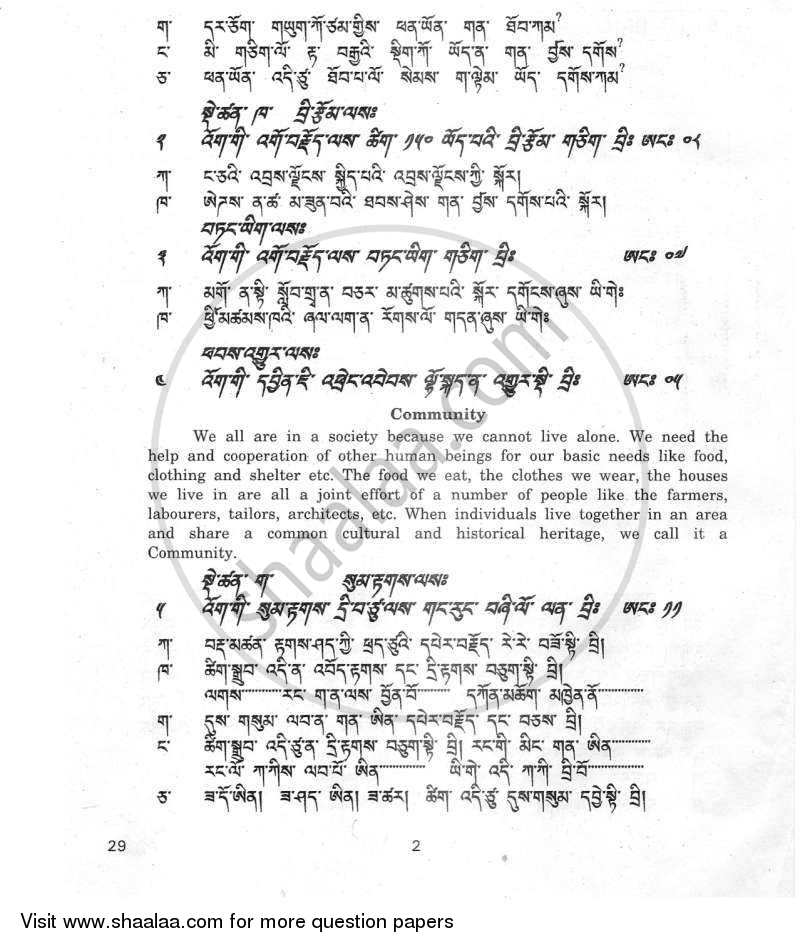 ག་ དར་ཅོག་ གཡུག་ཀོ་ཙམ་གྱིས་ ཕན་ཡོན་ གན་ ཐོབ་ཀམ?
ང་ མི་ གཅིག་ལོ་ རྟ་ བརྒྱའི་ སྡིག་ཀོ་ ཡོད་ན་ གན་ བྱོས་ དགོས?
ཅ་ ཕན་ཡོན་ འདི་ཙུ་ ཐོབ་པ་ལོ་ སེམས་ ག་ལྟེམ་ ཡོད་ དགོས་ཀམ?
སྡེ་ཚན་ ཁ་ བྲི་རྩོམ་ལས༔
༢ འོག་གི་ འགོ་བརྗོད་ལས་ ཚིག་ ༡༥༠ ཡོད་པའི་ བྲི་རྩོམ་ གཅིག་ བྲི༔ ཨང༔ ༠༨
ཀ་ ང་ཅའི་ འབྲས་ལྗོངས་ སྐྱིད་པའི་ འབྲས་ལྗོངས་ཀྱི་ སྐོར།
ཁ་ ཨེཌས་ ན་ཚ་ མ་ཟུན་བའི་ ཐབས་ཤེས་ གན་ བྱོས་ དགོས་པའི་ སྐོར།
བཏང་ཡིག་ལས༔
༣ འོག་གི་ འགོ་བརྗོད་ལས་ བཏང་ཡིག་ གཅིག་ བྲི༔ ཨང༔ ༠༧
ཀ་ མགོ་ ན་སྟི་ སློབ་གྲྭ་ན་ བཅར་ མ་ཚུགས་པའི་ སྐོར་ དགོངས་ཞུས་ ཡི་གེ༔
ཁ་ ཕྱི་མཚམས་ཁའི་ ཞལ་ལག་ན་ རོགས་ལོ་ གདན་ཞུས་ ཡི་གེ༔
ཕབས་འགྱུར་ལས༔
༤ འོག་གི་ དབྱིན་ཇི་ འཕྲེང་འབེབས་ ལྷོ་སྐད་ན་ འགྱུར་སྡི་ བྲི༔ ཨང༔ ༠༥
Community
We all are in a society because we cannot live alone. We need the
help and cooperation of other human beings for our basic needs like food,
clothing and shelter etc. The food we eat, the clothes we wear, the houses
we live in are all a joint effort of a number of people like the farmers,
labourers, tailors, architects, etc. When individuals live together in an area
and share a common cultural and historical heritage, we call it a
Community.
སྡེ་ཚན་ ག་ སུམ་རྟགས་ལས༔
༥ འོག་གི་ སུམ་རྟགས་ དྲི་བ་ཙུ་ལས་ གང་རུང་ བཞི་ལོ་ ལན་ བྲི༔ ཨང༔ ༡༡
ཀ་ བརྡ་མཚན་ རྟགས་ཤད་ཀྱི་ ཕྲད་ཙུའི་ དཔེར་བརྗོད་ རེ་རེ་ བཟོ་སྟི་ བྲི།
ཁ་ ཚིག་སྒྲུབ་ འདི་ན་ འབོད་རྟགས་ དང་ དྲི་རྟགས་ བཅུག་སྟི་ བྲི།
ལགས་......... རང་ ག་ན་ལས་ བྱོན་བོ་....... དཀོན་མཆོག་ མཁྱེན་ནོ་...........
ག་ དུས་ གསུམ་ ལབ་ན་ གན་ ཨིན་ དཔེར་བརྗོད་ དང་ བཅས་ བྲི།
ང་ ཚིག་སྒྲུབ་ འདི་ཙུ་ན་ དྲི་རྟགས་ བཅུག་སྟི་ བྲི། རང་གི་ མིང་ གན་ ཨིན་...........
རང་ལོ་ ཀ་ཀིས་ ལབ་པོ་ ཨིན་............ ཡི་གེ་ འདི་ ཀ་ཀི་ བྲི་བོ་.............
ཅ་ ཟ་དོ་ཨིན། ཟ་ཤད་ ཨིན། ཟ་ཚར། ཚིག་ འདི་ཙུ་ དུས་གསུམ་ དབྱེ་སྟི་ བྲི།
29 2
shaalaa.com
Visit www.shaalaa.com for more question papers